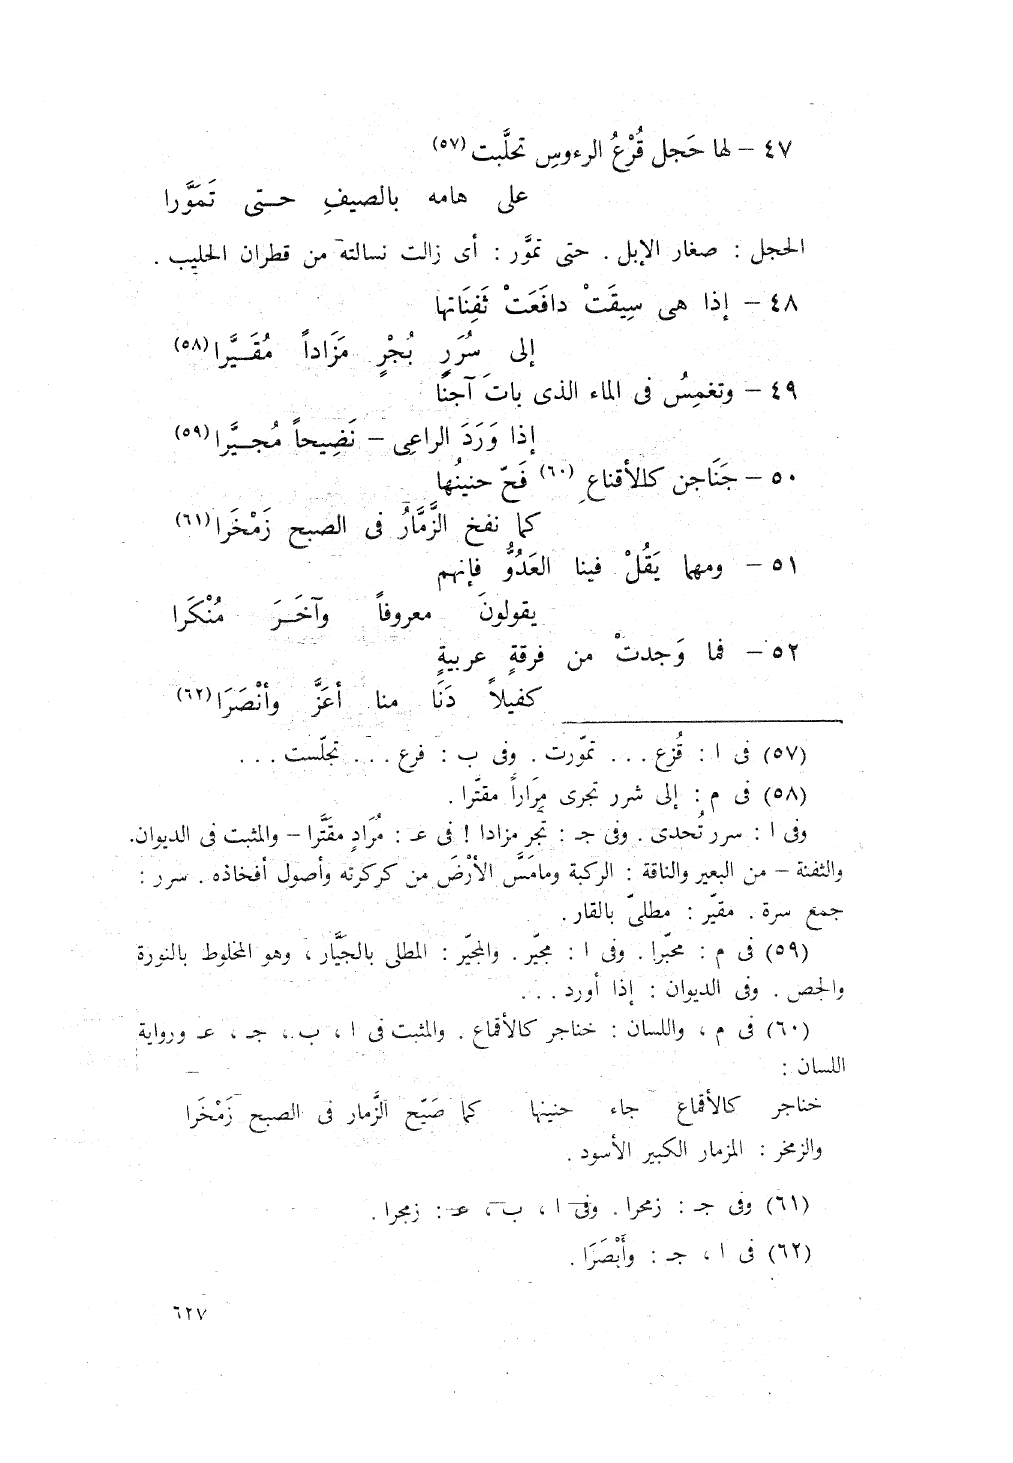 ٤٧ – لها حَجل قُرْعُ الرءوسِ تحلَّبت (٥٧)
على هامه بالصيفِ حتى تَمَوَّرا
الحجل : صغار الإبل . حتى تموَّر : أى زالت نسالته من قطران الحليب .
٤٨ – إذا هى سِيقَتْ دافَعَتْ ثَفِنَاتها
إلى سُرَرٍ بُجْرٍ مَزَاداً مُقَيَّرا (٥٨)
٤٩ – وتغمِسُ فى الماء الذى باتَ آجنًا
إذا وَرَدَ الراعِى – نَضِيحاً مُجيَّرا (٥٩)
٥٠ – جَنَاجن كالأقناعِ (٦٠) فَحّ حنينُها
كما نفخ الزَّمَّارُ فى الصبح زَمْخَرا (٦١)
٥١ – ومهما يَقُلْ فينا العَدُوُّ فإنهم
يقولونَ معروفاً وآخَرَ مُنْكَرا
٥٢ – فما وَجدتْ من فرقةٍ عربيةٍ
كفيلاً دَنَا منا أعَزَّ وأنْصَرَا (٦٢)
(٥٧) فى ا : قُزع . . . تموّرت . وفى ب : فرع . . . تجلّست . . .
(٥٨) فى م : إلى شرر تجرى مِرَاراً مقتَّرا .
وفى ا : سرر تُحدى . وفى جـ : تَجر مزادا ! فى عـ : مُرَادٍ مقَتَّرا – والمثبت فى الديوان.
والثفنة – من البعير والناقة : الركبة ومامَسَّ الأرْضَ من كركرته وأصول أفخاذه . سرر :
جمع سرة . مقيّر : مطلىّ بالقار .
(٥٩) فى م : محبّرا . وفى ا : مجيّر . والمجيّر : المطلى بالجَيَّار ، وهو المخلوط بالنورة
والجص . وفى الديوان : إذا أورد . . .
(٦٠) فى م ، واللسان : خناجر كالأقماع . والمثبت فى ا ، ب ، جـ ، عـ ورواية
اللسان :
خناجر كالأقماع جاء حنينها كما صَيّح الزَّمار فى الصبح زَمْخَرا
والزمخر : المزمار الكبير الأسود .
(٦١) وفى جـ : زمحرا . وفى ا ، ب ، عـ : زمجرا .
(٦٢) فى ا ، جـ : وأَبْصَرَا .
٦٢٧